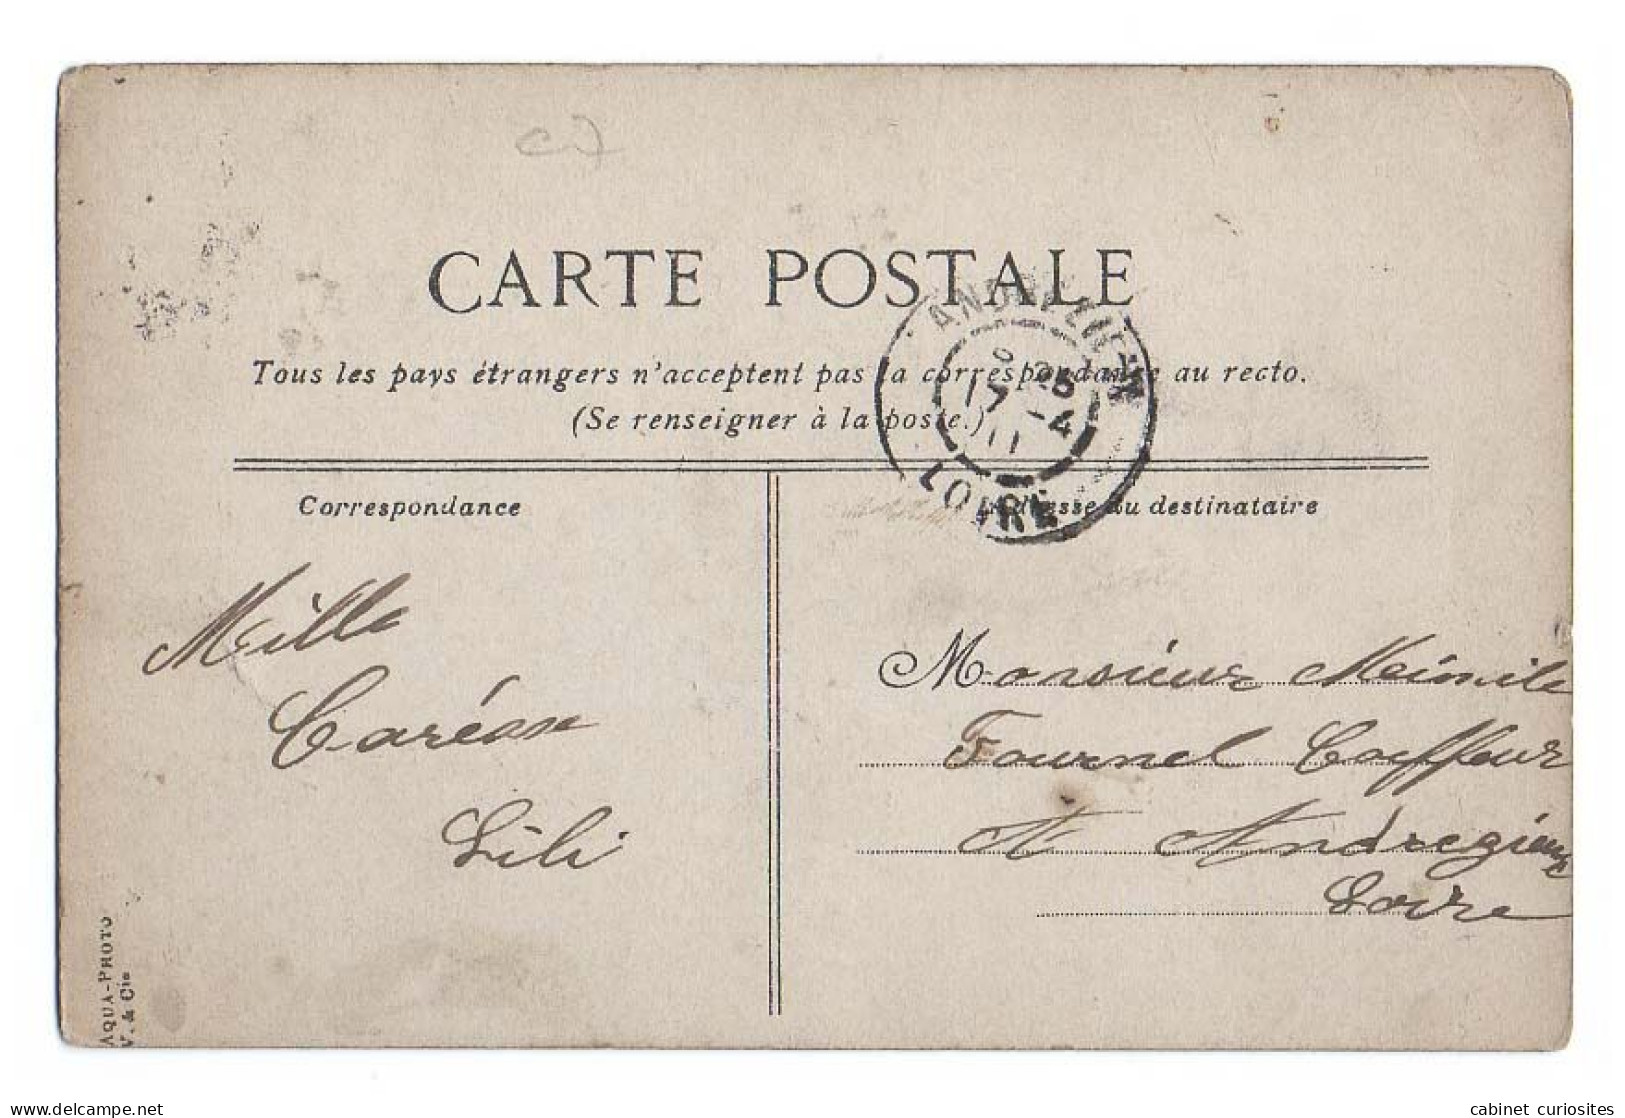 CARTE POSTALE
Tous les pays étrangers n'acceptent pas la correspondance au recto.
(Se renseigner à la poste.)
ANDREZIEUX
8 25
17 -4
11
LOIRE
Correspondance
Adresse du destinataire
Mille
Caréase
Lili
Monsieur
Fournel Coiffeur
A Andregieux
Loire
AQUA-PHOTO
V. & Cie
delcampe.net
cabinet_curiosites